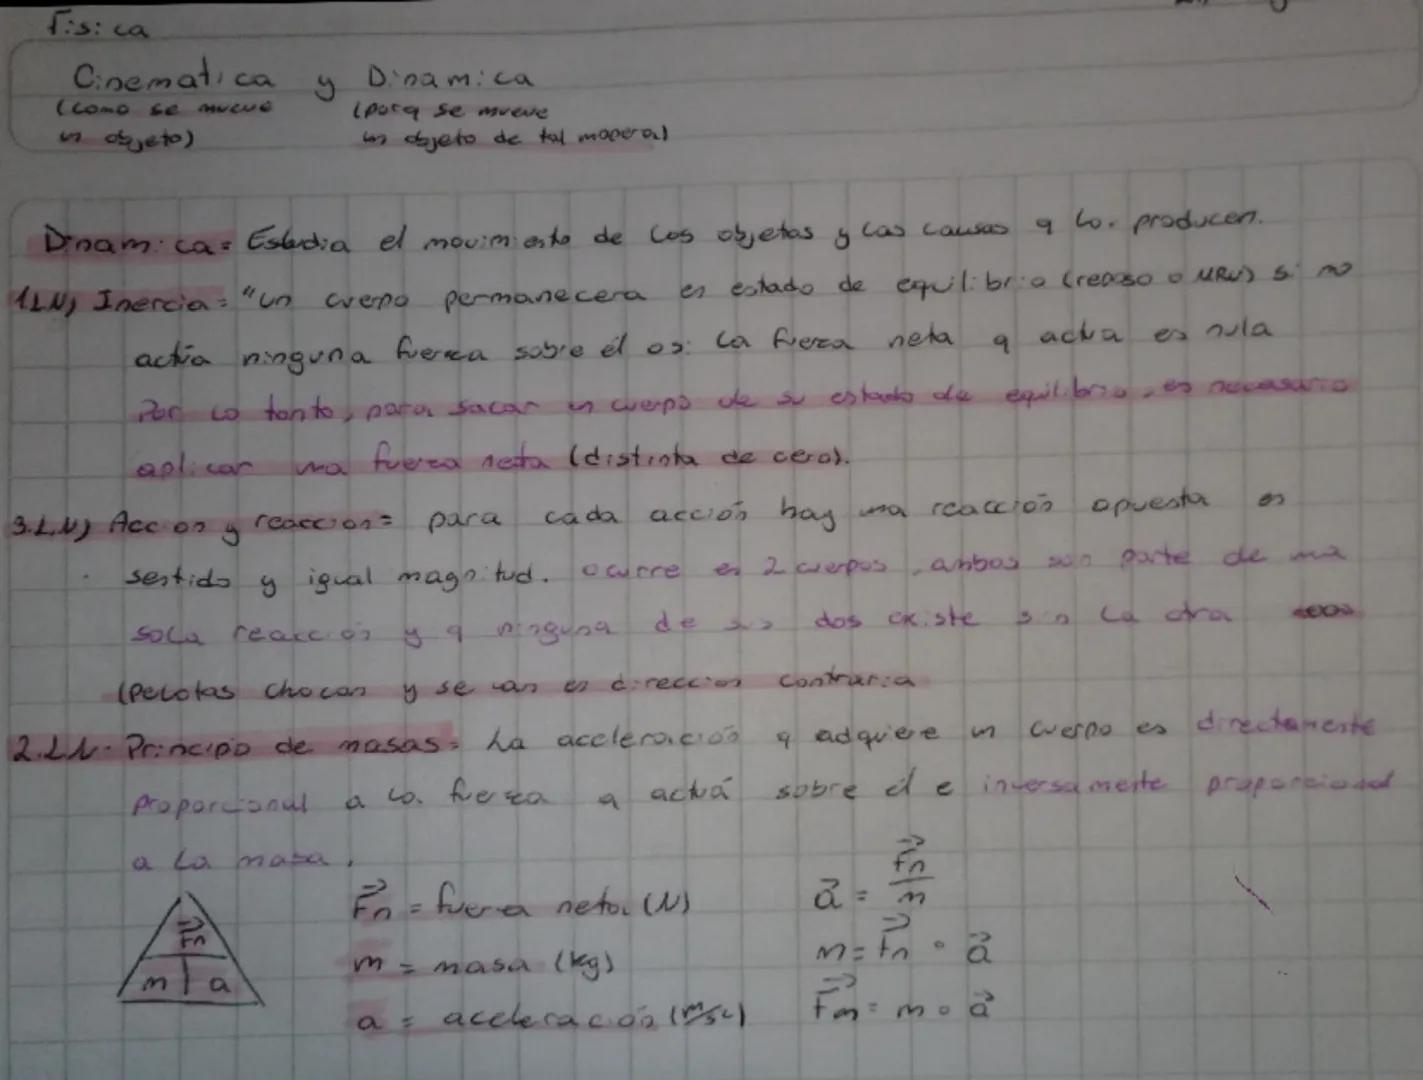 Física
Cinematica y Dinamica
(como se mueve (porq se mueve
un objeto) un objeto de tal manera)
Dinamica = Estudia el movimiento de los objetos y las causas q lo producen.
1.L.N) Inercia = "un cuerpo permanecera en estado de equilibrio (reposo o MRU) si no
actúa ninguna fuerza sobre él o si la fuerza neta q actua es nula
Por lo tanto, para sacar un cuerpo de su estado de equilibrio, es necesario
aplicar una fuerza neta (distinta de cero).
3.L.N) Accion y reaccion = para cada acción hay una reacción opuesta en
sentido y igual magnitud. ocurre en 2 cuerpos, ambos son parte de una
sola reaccion y q ninguna de las dos existe sin la otra
(pelotas chocan y se van en direccion contraria
2.L.N. Principio de masas = La aceleración q adquiere un cuerpo es directamente
proporcional a la fuerza q actuá sobre él e inversamente proporcional
a la masa.
F⃗n = fuerza neta (N) a⃗ = F⃗n/m
F⃗n
m = masa (kg) m = F⃗n · a⃗
m a
a = aceleración (m/s²) F⃗m = m · a⃗